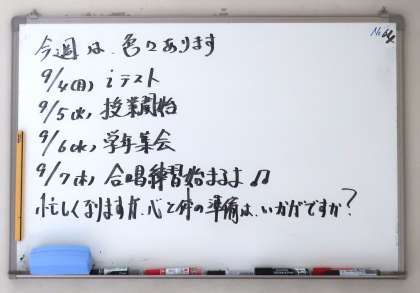 今週は、色々あります
9/4(月) iテスト
9/5(火) 授業開始
9/6(水) 学年集会
9/7(木) 合唱練習始まるよ♫
忙しくなりますが、心と体の準備は、いかがですか?